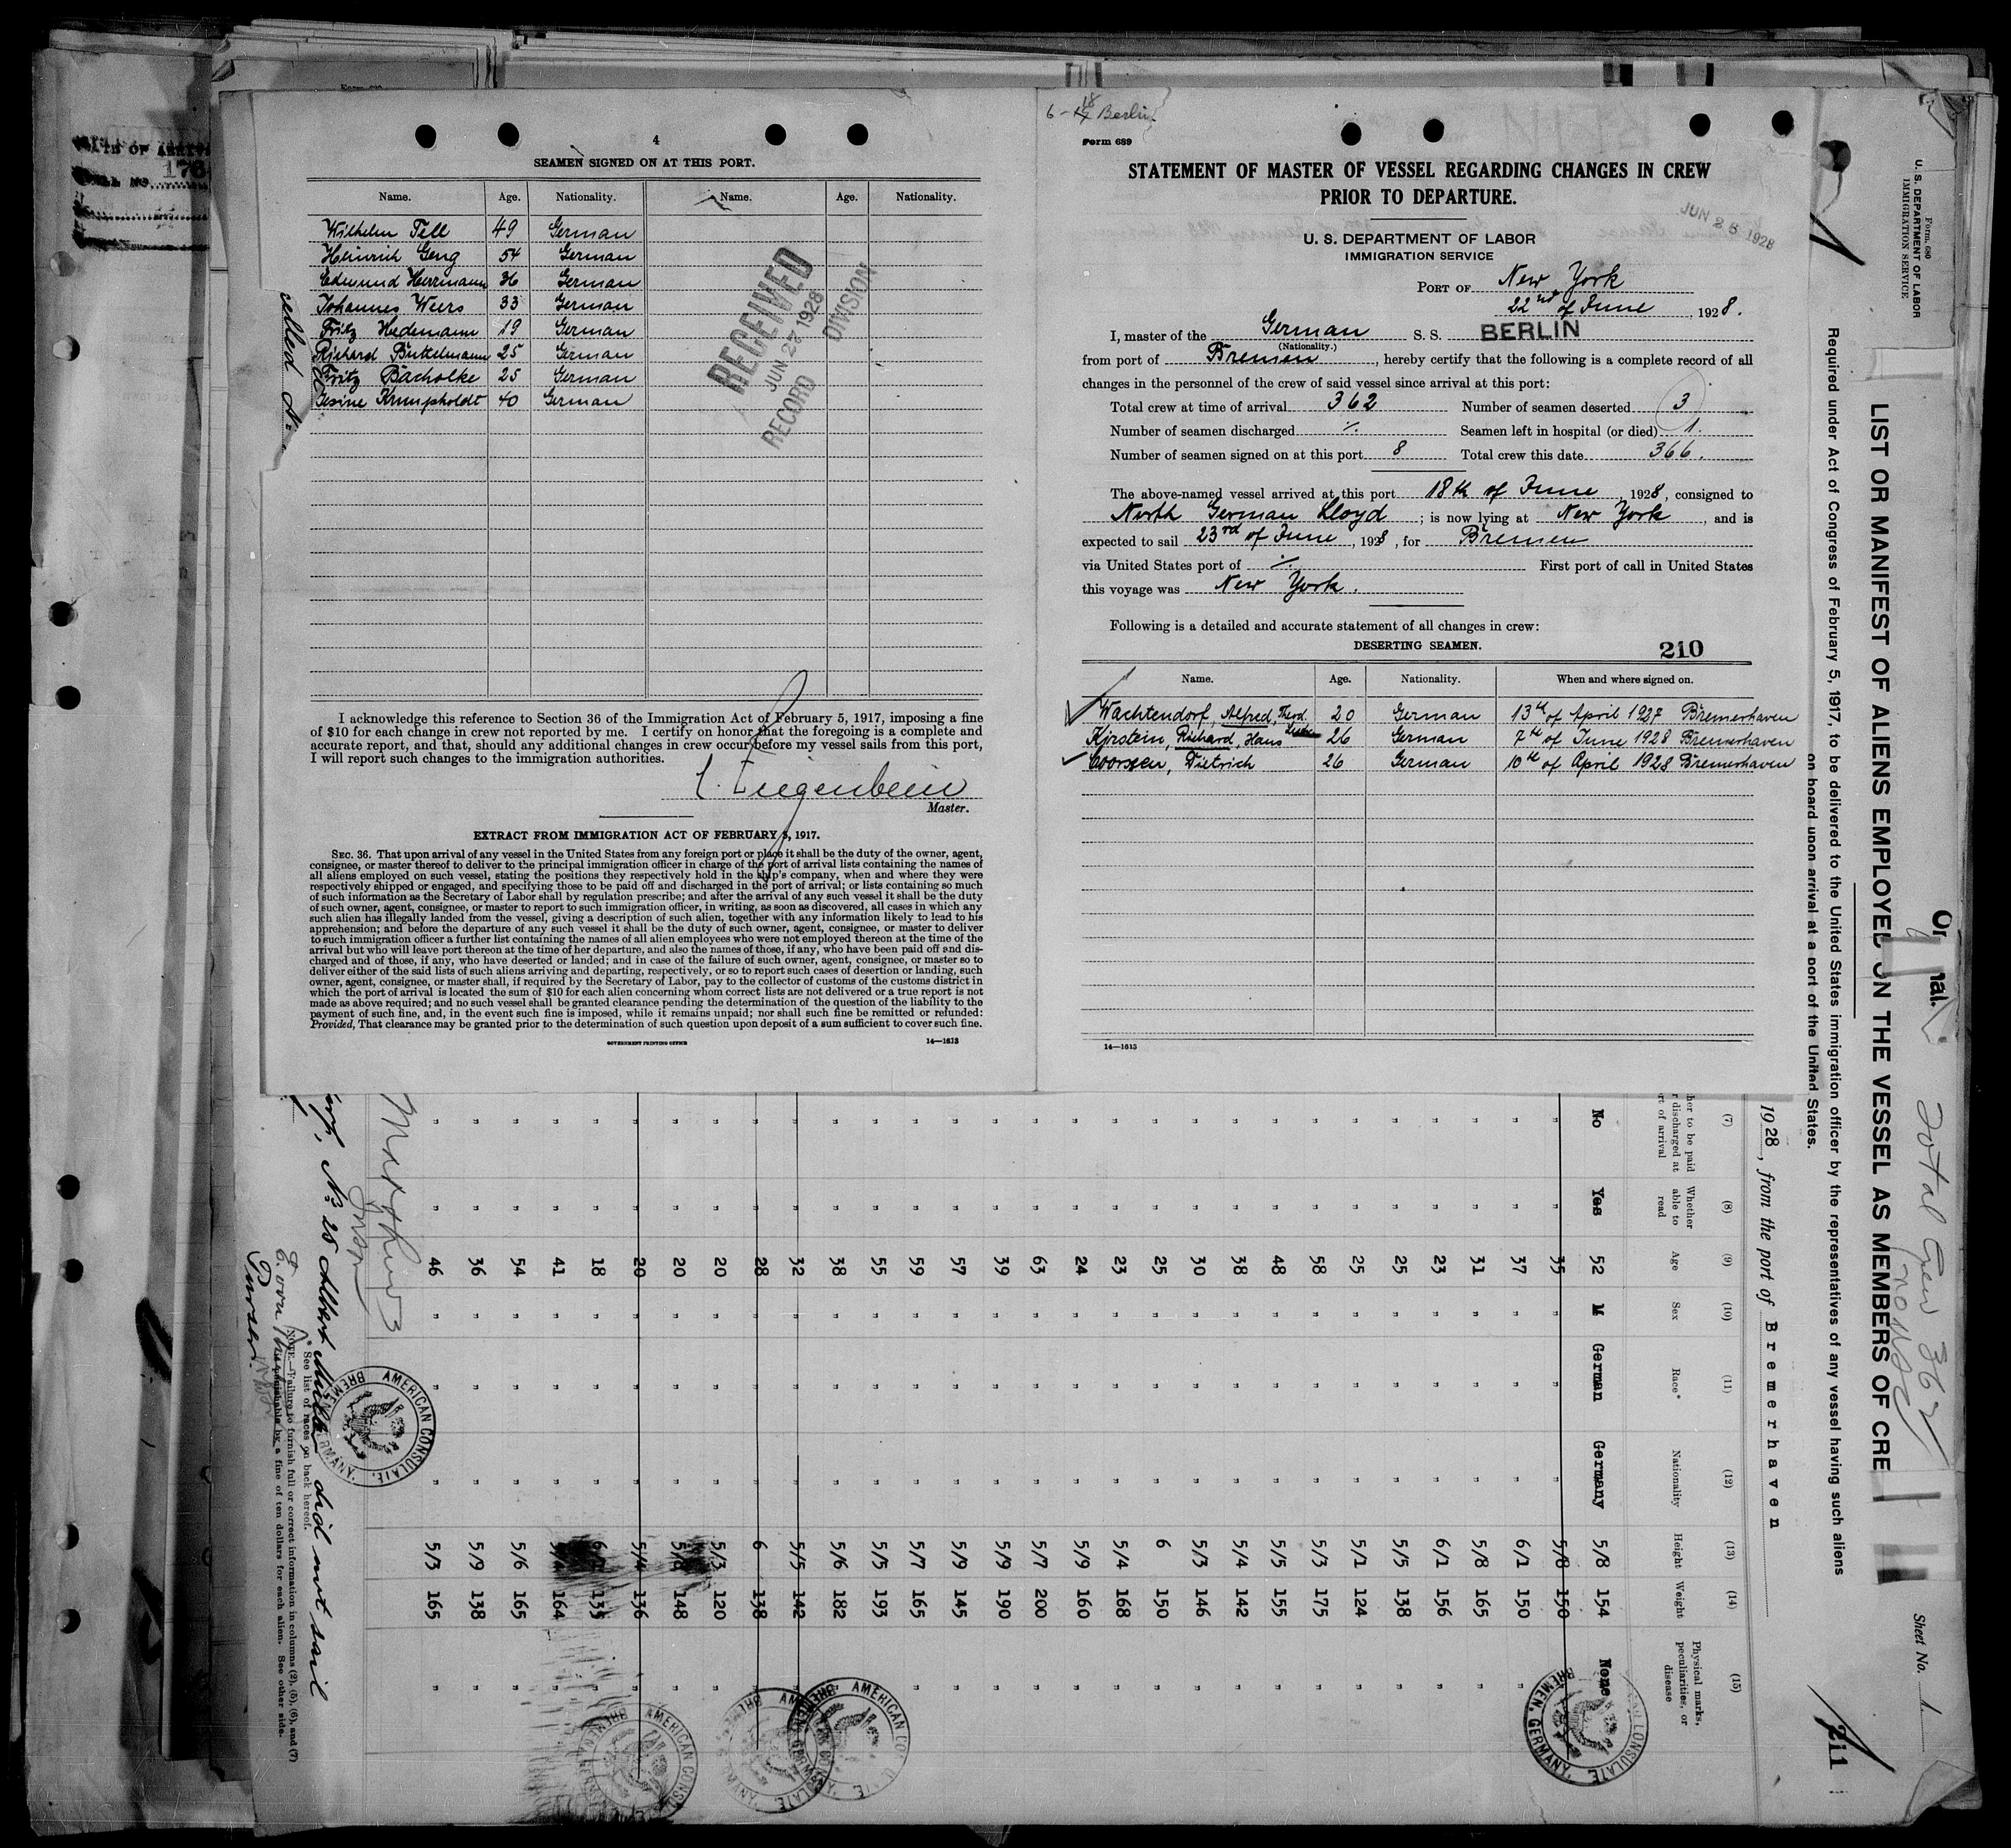 4
SEAMEN SIGNED ON AT THIS PORT.
Name. Age. Nationality. Name. Age. Nationality.
Wilhelm Tell 49 German
Heinrich Geng 54 German
Edmund Herrmann 36 German
Johannes Weers 33 German
Fritz Hedemann 19 German
Richard 25 German
Fritz Bacholke 25 German
Gesine Krumpholdt 40 German
RECEIVED
JUN 27 1928
RECORD DIVISION
I acknowledge this reference to Section 36 of the Immigration Act of February 5, 1917, imposing a fine
of $10 for each change in crew not reported by me. I certify on honor that the foregoing is a complete and
accurate report, and that, should any additional changes in crew occur before my vessel sails from this port,
I will report such changes to the immigration authorities.
Master.
EXTRACT FROM IMMIGRATION ACT OF FEBRUARY 5, 1917.
SEC. 36. That upon arrival of any vessel in the United States from any foreign port or place it shall be the duty of the owner, agent,
consignee, or master thereof to deliver to the principal immigration officer in charge of the port of arrival lists containing the names of
all aliens employed on such vessel, stating the positions they respectively hold in the ship's company, when and where they were
respectively shipped or engaged, and specifying those to be paid off and discharged in the port of arrival; or lists containing so much
of such information as the Secretary of Labor shall by regulation prescribe; and after the arrival of any such vessel it shall be the duty
of such owner, agent, consignee, or master to report to such immigration officer, in writing, as soon as discovered, all cases in which any
such alien has illegally landed from the vessel, giving a description of such alien, together with any information likely to lead to his
apprehension; and before the departure of any such vessel it shall be the duty of such owner, agent, consignee, or master to deliver
to such immigration officer a further list containing the names of all alien employees who were not employed thereon at the time of the
arrival but who will leave port thereon at the time of her departure, and also the names of those, if any, who have been paid off and dis-
charged and of those, if any, who have deserted or landed; and in case of the failure of such owner, agent, consignee, or master so to
deliver either of the said lists of such aliens arriving and departing, respectively, or so to report such cases of desertion or landing, such
owner, agent, consignee, or master shall, if required by the Secretary of Labor, pay to the collector of customs of the customs district in
which the port of arrival is located the sum of $10 for each alien concerning whom correct lists are not delivered or a true report is not
made as above required; and no such vessel shall be granted clearance pending the determination of the question of the liability to the
payment of such fine, and, in the event such fine is imposed, while it remains unpaid; nor shall such fine be remitted or refunded:
Provided, That clearance may be granted prior to the determination of such question upon deposit of a sum sufficient to cover such fine.
GOVERNMENT PRINTING OFFICE 14—1613
6-18 Berlin
Form 689
STATEMENT OF MASTER OF VESSEL REGARDING CHANGES IN CREW
PRIOR TO DEPARTURE.
JUN 23 1928
U. S. DEPARTMENT OF LABOR
IMMIGRATION SERVICE
PORT OF New York
22nd of June, 1928.
I, master of the German S. S. BERLIN
(Nationality.)
from port of Bremen, hereby certify that the following is a complete record of all
changes in the personnel of the crew of said vessel since arrival at this port:
Total crew at time of arrival 362 Number of seamen deserted 3
Number of seamen discharged ./. Seamen left in hospital (or died) 1.
Number of seamen signed on at this port 8 Total crew this date 366.
The above-named vessel arrived at this port 18th of June, 1928, consigned to
North German Lloyd; is now lying at New York, and is
expected to sail 23rd of June, 1928, for Bremen
via United States port of ./. First port of call in United States
this voyage was New York.
Following is a detailed and accurate statement of all changes in crew:
DESERTING SEAMEN. 210
Name. Age. Nationality. When and where signed on.
Wachtendorf, Alfred, Theod. 20 German 13th of April 1927 Bremerhaven
Kirstein, Richard, Hans 26 German 7th of June 1928 Bremerhaven
Coorssen, Dietrich 26 German 10th of April 1928 Bremerhaven
14—1613
Form 680
U. S. DEPARTMENT OF LABOR
IMMIGRATION SERVICE
Total Crew 362
Sheet No. 1.
211
LIST OR MANIFEST OF ALIENS EMPLOYED ON THE VESSEL AS MEMBERS OF CRE
Required under Act of Congress of February 5, 1917, to be delivered to the United States immigration officer by the representatives of any vessel having such aliens
on board upon arrival at a port of the United States.
1928, from the port of Bremerhaven
(7) (8) (9) (10) (11) (12) (13) (14) (15)
her to be paid
r discharged at
rt of arrival
Whether
able to
read
Age Sex Race* Nationality Height Weight
Physical marks,
peculiarities, or
disease
No Yes 52 M German Germany 5/8 154 None
" " 35 " " " 5/8 150
" " 37 " " " 6/1 150 "
" " 31 " " " 5/8 165 "
" " 23 " " " 6/1 156 "
" " 25 " " " 5/5 138 "
" " 25 " " " 5/1 124 "
" " 58 " " " 5/3 175 "
" " 48 " " " 5/5 155 "
" " 38 " " " 5/4 142 "
" " 30 " " " 5/3 146 "
" " 25 " " " 6 150 "
" " 23 " " " 5/4 168 "
" " 24 " " " 5/9 160 "
" " 63 " " " 5/7 200 "
" " 39 " " " 5/9 190 "
" " 57 " " " 5/9 145 "
" " 59 " " " 5/7 165 "
" " 55 " " " 5/5 193
" " 38 " " " 5/6 182
" " 32 " " " 5/5 142
" " 28 " " " 6 138
" " 20 " " " 5/3 120 "
" " 20 " " " 148 "
" " 20 " " " 5/4 136
" " 18 " " " 135 "
" " 41 " " " 164 "
" " 54 " " " 5/6 165 "
" " 36 " " " 5/9 138 "
" " 46 " " " 5/3 165 "
AMERICAN CONSULATE, BREMEN, GERMANY.
No 25 Albert Müller did not sail
* See list of races on back hereof.
NOTE.—Failure to furnish full or correct information in columns (2), (5), (6), and (7)
by a fine of ten dollars for each alien. See other side.
Purser.